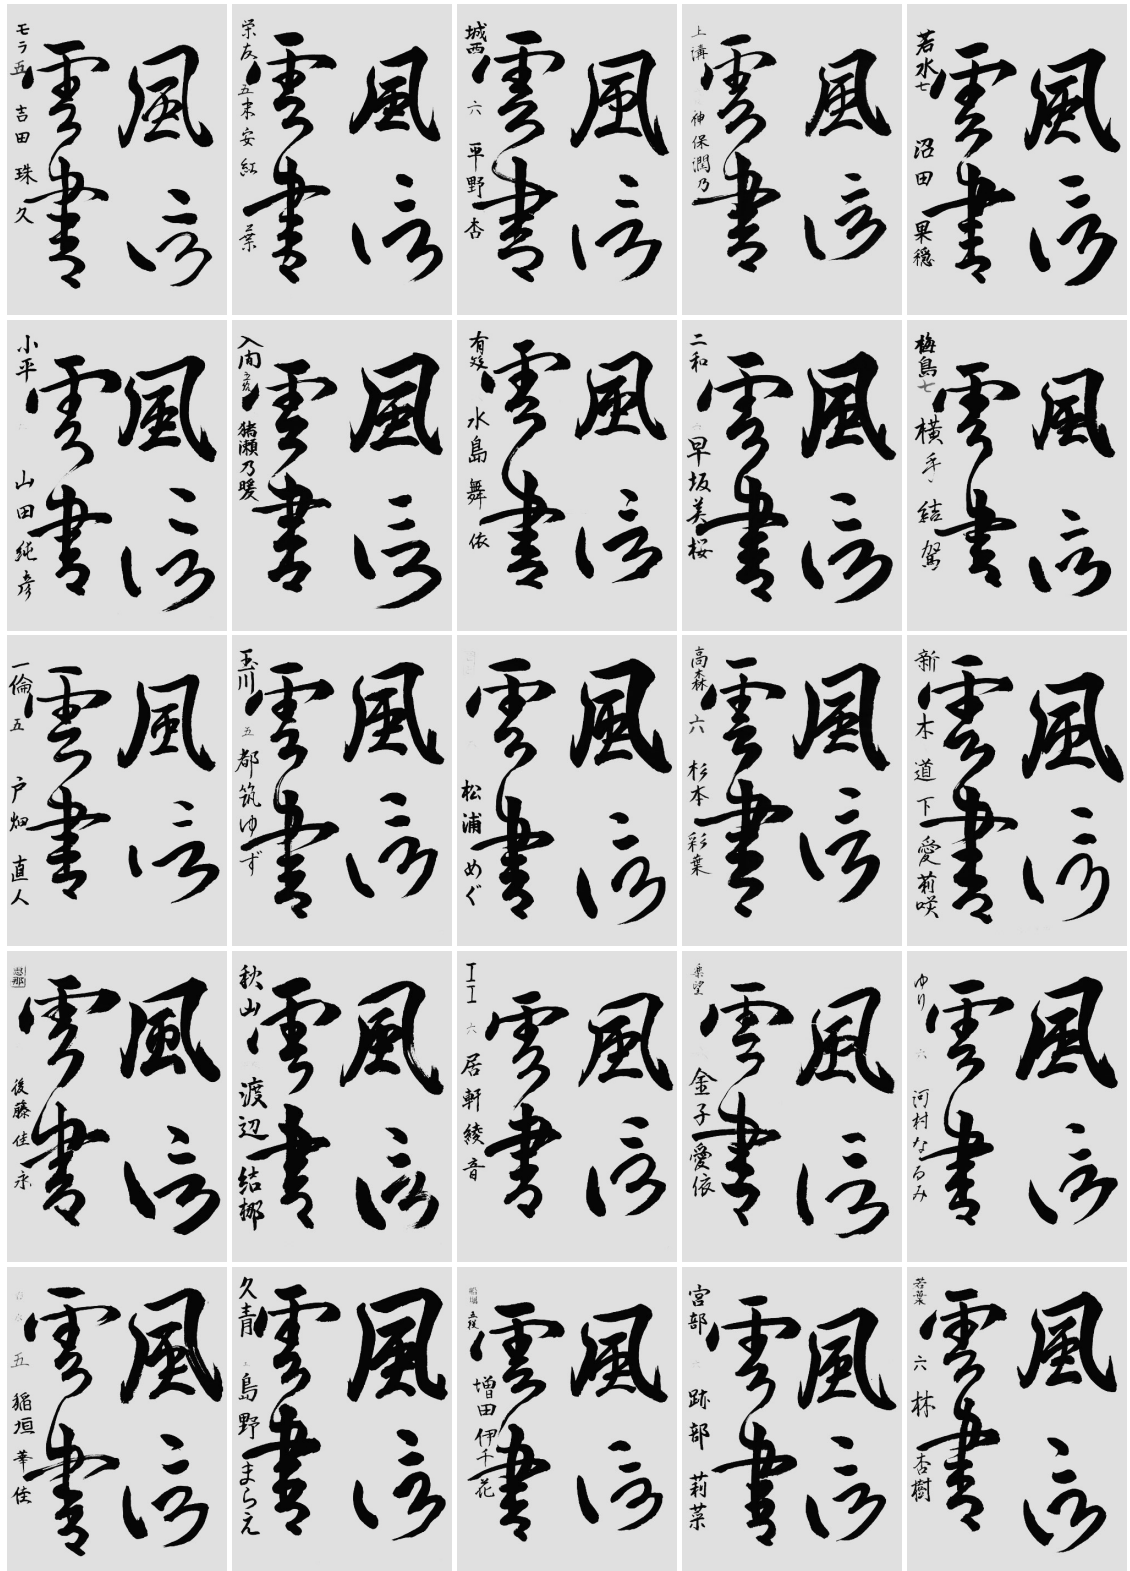 風信
雲書
モラ五 吉田 珠久
風信
雲書
栄友 五末安 紅葉
風信
雲書
城西 六 平野 杏
風信
雲書
上溝 神保潤乃
風信
雲書
若水七 沼田 果穏
風信
雲書
小平 山田 純彦
風信
雲書
入間 猪瀬乃暖
風信
雲書
水島 舞依
風信
雲書
二和 早坂美桜
風信
雲書
梅島七 横手 結
風信
雲書
一倫 五 戸畑 直人
風信
雲書
玉川 五 都筑ゆず
風信
雲書
松浦 めぐ
風信
雲書
高森 六 杉本 彩葉
風信
雲書
新木 道下 愛莉咲
風信
雲書
後藤 佳永
風信
雲書
秋山 渡辺 結梛
風信
雲書
エエ 六 居軒 綾音
風信
雲書
金子愛依
風信
雲書
ゆり 六 河村なるみ
風信
雲書
五 稲垣 華佳
風信
雲書
久青 島野 まらえ
風信
雲書
五段 増田 伊千花
風信
雲書
宮部 六 跡部 莉菜
風信
雲書
若葉 六 林 杏樹